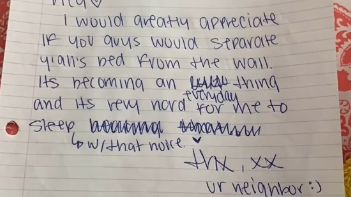 Hey ♡
I would greatly appreciate
if you guys would separate
y'all's bed from the wall.
Its becoming an everyday thing
and its very hard for me to
sleep
↳ w/ that noise
thx, xx
ur neighbor :)